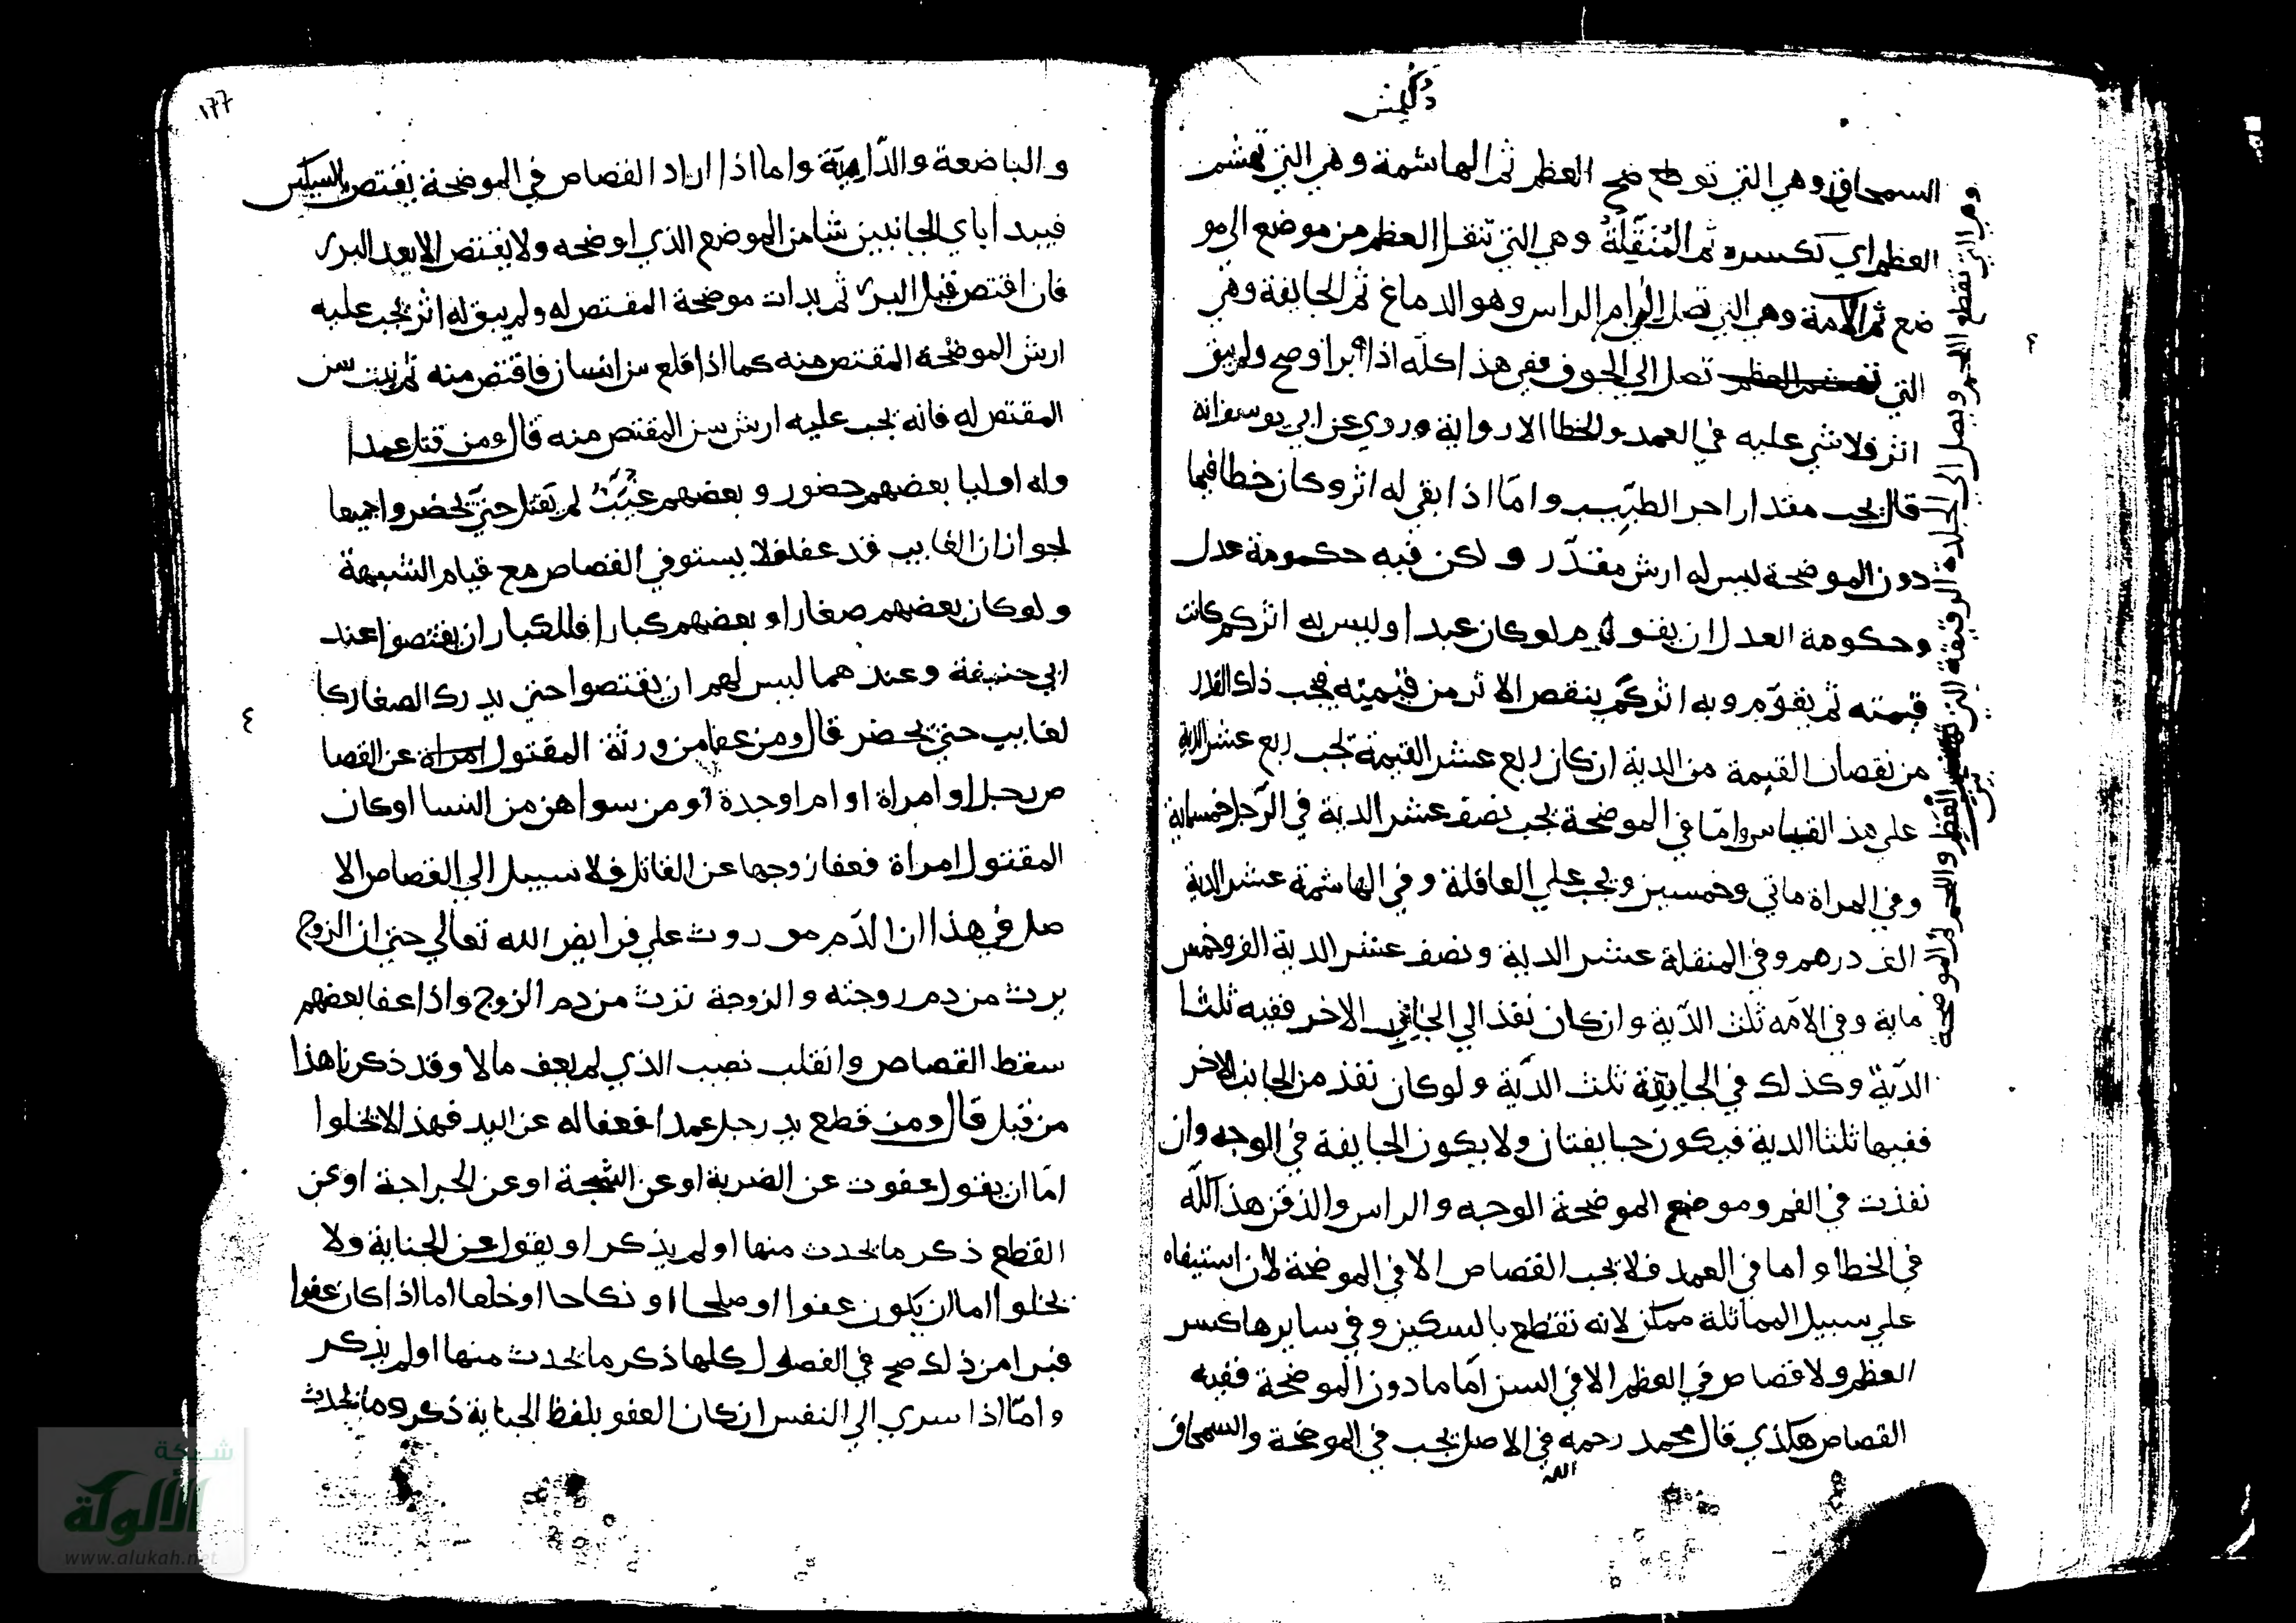 السمحاق وهي التي توضح العظم ثم الهاشمة وهي التي تهشم
العظم اي تكسره ثم المُنَقِّلَةُ وهي التي تنقل العظم من موضع الى مو
ضع ثم الآمة وهي التي تصل الى ام الراس وهو الدماغ ثم الجايفة وهي
التي تصل الي الجوف ففي هذا كله اذا برا وصح ولم يبق
اثر فلا شي عليه في العمد والخطا الا رواية وروي عن ابي يوسف انه
قال يجب مقدار اجر الطبيب واما اذا بقي له اثر وكان خطا فيما
دون الموضحة ليس له ارش مقدّر و لكن فيه حكومة عدل
وحكومة العدل ان يقوم لو كان عبدا وليس به اثر كم كانت
قيمته ثم يقوّم وبه اثر كم ينقص الاثر من قيمته فيجب ذلك القدر
من نقصان القيمة من الدية ان كان ربع عشر القيمة يجب ربع عشر الدية
علي هذ القياس وامّا في الموضحة يجب نصف عشر الدية في الرّجل خمسماية
وفي المراة ماتي وخمسين ويجب علي العاقلة وفي الهاشمة عشر الدية
الف درهم وفي المنقلة عشر الدية ونصف عشر الدية الف وخمس
ماية وفي الامّه ثلث الدّية وان كان نفذ الي الجانب الاخر ففيه ثلثا
الدّية وكذلك في الجايفة ثلث الدّية ولو كان نفذ من الجانب الاخر
ففيها ثلثا الدية فيكون جايفتان ولا يكون الجايفة في الوجه وان
نفذت في الفم وموضع الموضحة الوجه والراس والذقن هذا كلّه
في الخطا واما في العمد فلا يجب القصاص الا في الموضحة لان استيفاه
علي سبيل المماثلة ممكن لانه تقطع بالسكين وفي سايرها كسر
العظم ولا قصاص في العظم الا في السن اما ما دون الموضحة ففيه
القصاص هكذي قال محمد رحمه الله في الاصل يجب في الموضحة والسمحاق
وهي التي تقطع اللحم وتصل الي الجلدة الرقيقة التي بين العظم واللحم ثم الموضحة
١٦٦
والباضعة والدّامية واما اذا اراد القصاص في الموضحة يقتص بالسكين
فيبدا باي الجانبين شا من الموضع الذي اوضحه ولا يقتص الا بعد البرء
فان اقتص قبل البرء ثم بدات موضحة المقتص له ولم يبق له اثر يجب عليه
ارش الموضحة المقتص منه كما اذا قلع سن انسان فاقتص منه ثم نبت سن
المقتص له فانه يجب عليه ارش سن المقتص منه قال ومن قتل عمدا
وله اوليا بعضهم حضور و بعضهم غُيَّبٌ لم يقتل حتي يحضروا جميعا
لجواز ان الغايب قد عفا فلا يستوفي القصاص مع قيام الشبهة
ولو كان بعضهم صغارا و بعضهم كبارا فللكبار ان يقتصوا عند
ابي حنيفة وعندهما ليس لهم ان يقتصوا حتي يدرك الصغار كا
لغايب حتي يحضر قال ومن عفا من ورثة المقتول امراة عن القصا
ص رجل او امراة او ام او جدة او من سواهن من النسا او كان
المقتول امراة فعفا زوجها عن القاتل فلا سبيل الي القصاص الا
صل في هذا ان الدّم موروث علي فرايض الله تعالي حتي ان الزوج
يرث من دم زوجته والزوجة ترث من دم الزوج واذا عفا بعضهم
سقط القصاص وانقلب نصيب الذي لم يعف مالا وقد ذكرنا هذا
من قبل قال ومن قطع يد رجل عمدا فعفا له عن اليد فهذ لا يخلوا
امّا ان يقول عفوت عن الضربة او عن الشجة او عن الجراحة او عن
القطع ذكر ما يحدث منها او لم يذكر او يقول عن الجناية ولا
يخلوا اما ان يكون عفوا او صلحا او نكاحا او خلعا اما اذا كان عفوا
فبرا من ذلك صح في الفصول كلها ذكر ما يحدث منها او لم يذكر
وامّا اذا سري الي النفس ان كان العفو بلفظ الجناية ذكر وما يحدث
٤
شبكة
الألوكة
www.alukah.net